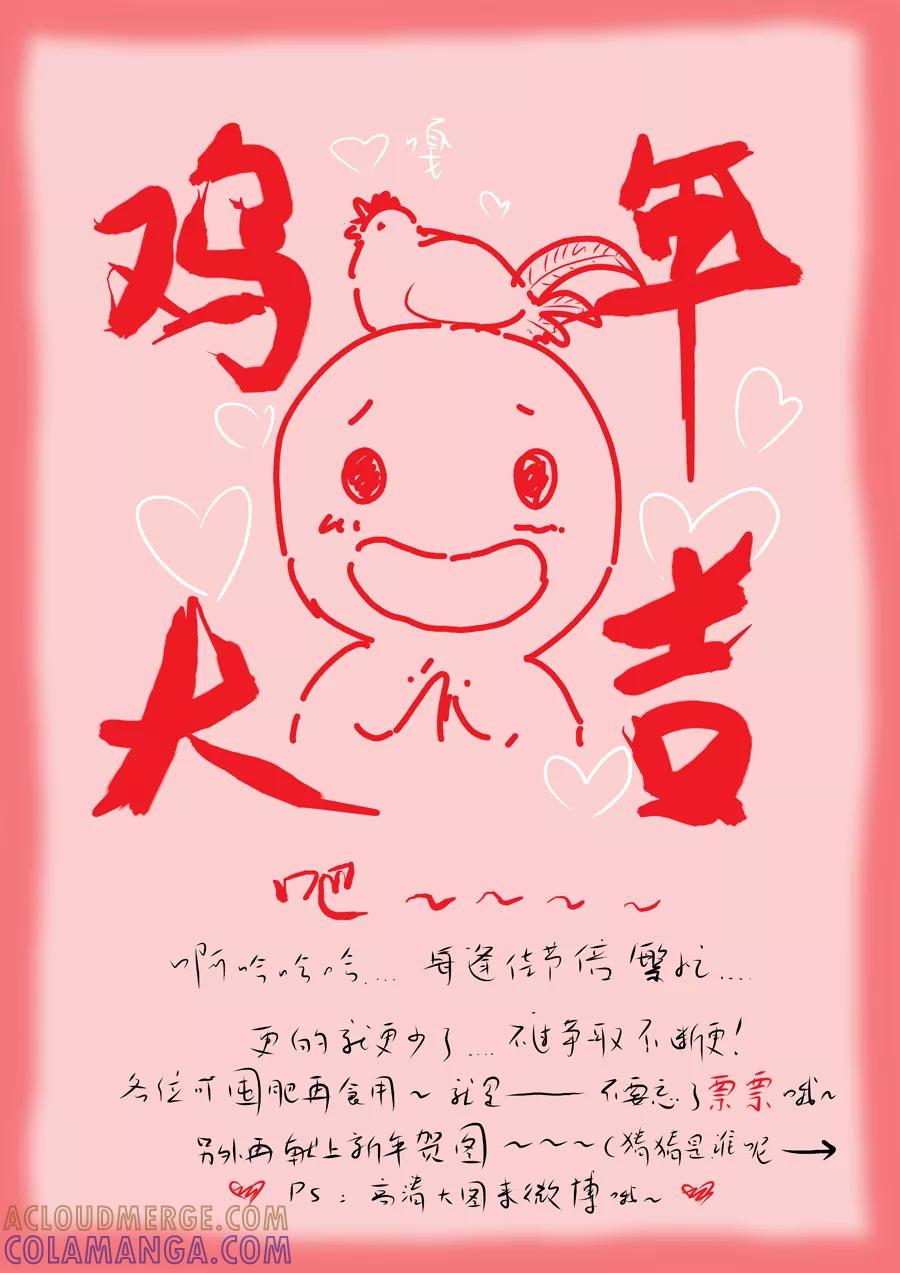 嘎
鸡年
大吉
吧~~~~
啊哈哈哈.... 每逢佳节倍繁忙....
更的就更少了.... 不过争取不断更!
各位可囤肥再食用~就是——不要忘了票票哦~
另外再献上新年贺图~~~(猜猜是谁呢→
Ps:高清大图来微博哦~
ACLOUDMERGE.COM
COLAMANGA.COM